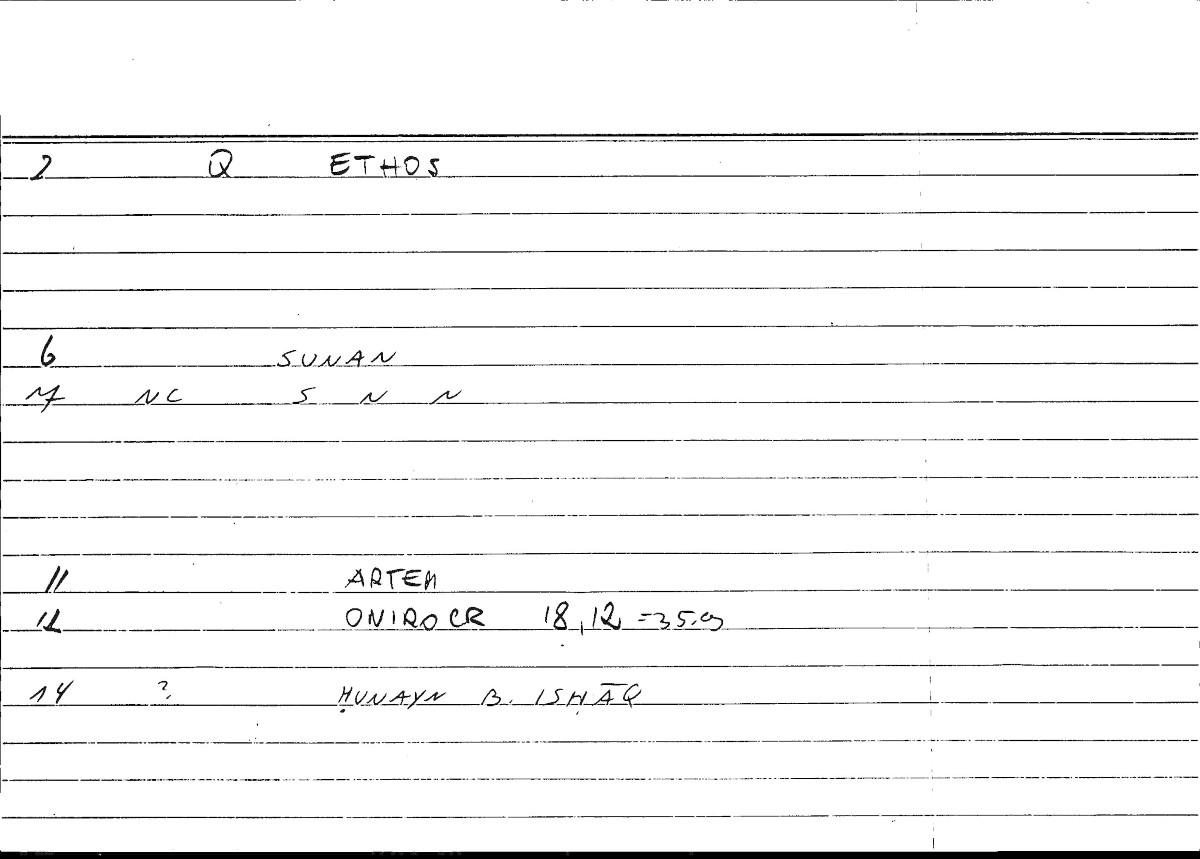 2 Q ETHOS
6 SUNAN
7 NC S N N
11 ARTEM
12 ONIROCR 18,12 =35.9
14 ? ḤUNAYN B. ISḤĀQ